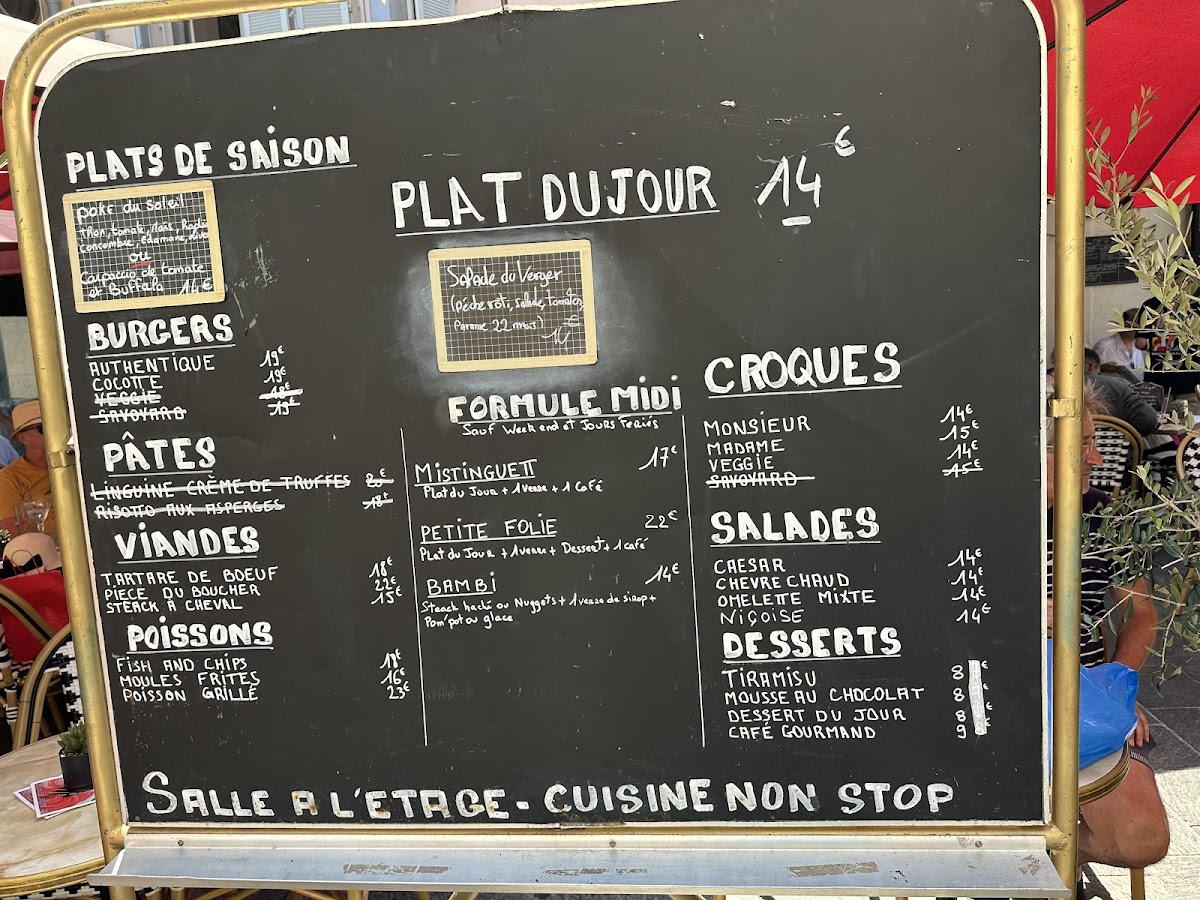 PLATS DE SAISON
poke du Soleil
Thon, tomate, Maïs, Radis
Concombre, Edamame,
ou
Carpaccio de tomate
et Buffala 14€
BURGERS
AUTHENTIQUE 19€
COCOTTE 19€
VEGGIE 18€
SAVOYARD 19€
PÂTES
LINGUINE CRÈME DE TRUFFES
RISOTTO AUX ASPERGES 18€
VIANDES
TARTARE DE BOEUF 18€
PIECE DU BOUCHER 22€
STEACK À CHEVAL 15€
POISSONS
FISH AND CHIPS 18€
MOULES FRITES 16€
POISSON GRILLÉ 23€
PLAT DU JOUR 14€
Salade du Verger
(pêche rôti, salade, tomates,
Parme 22 mois)
FORMULE MIDI
Sauf Week end et Jours Feriés
MISTINGUETT 17€
Plat du Jour + 1 Verre + 1 Café
PETITE FOLIE 22€
Plat du Jour + 1 verre + Dessert + 1 café
BAMBI 14€
Steack haché ou Nuggets + 1 verre de sirop +
Pom'pot ou glace
CROQUES
MONSIEUR 14€
MADAME 15€
VEGGIE 14€
SAVOYARD 15€
SALADES
CAESAR 14€
CHEVRE CHAUD 14€
OMELETTE MIXTE 14€
NIÇOISE 14€
DESSERTS
TIRAMISU 8€
MOUSSE AU CHOCOLAT 8€
DESSERT DU JOUR 8€
CAFÉ GOURMAND 9€
SALLE A L'ETAGE - CUISINE NON STOP